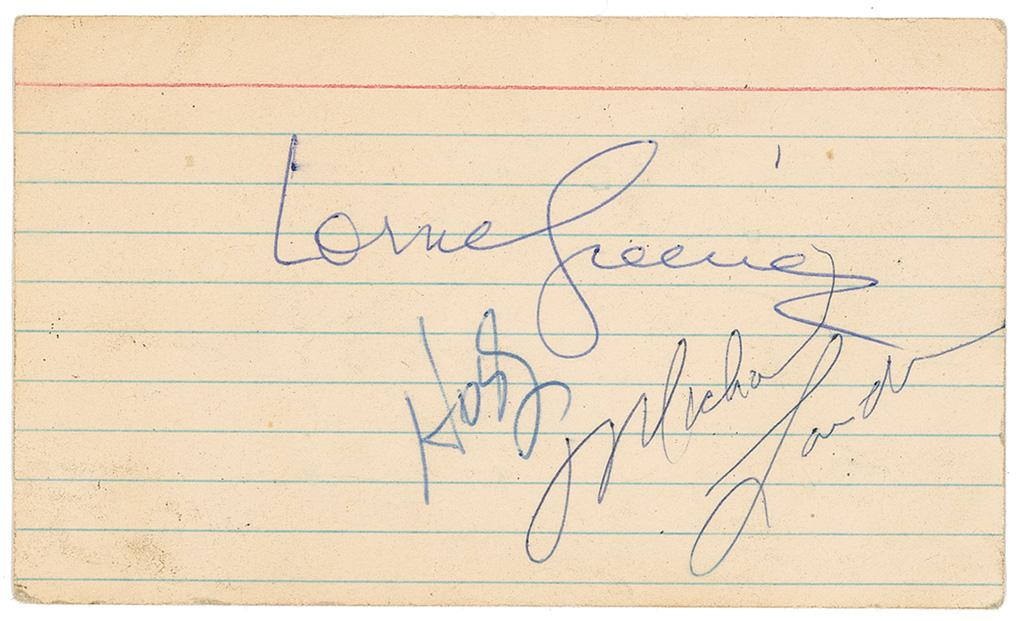 Lorne Greene
Hoss
Michael Landon